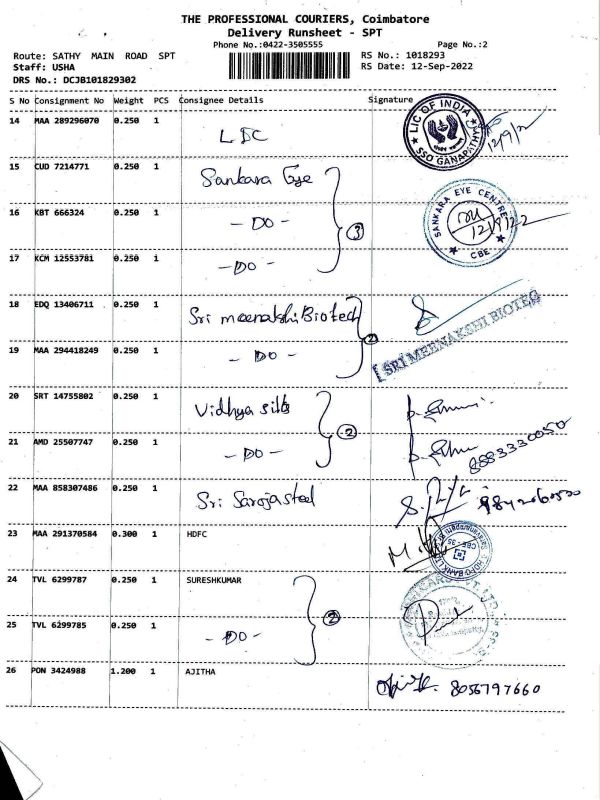 THE PROFESSIONAL COURIERS, Coimbatore
Delivery Runsheet - SPT
Phone No.:0422-3505555 Page No.:2
Route: SATHY MAIN ROAD SPT RS No.: 1018293
Staff: USHA RS Date: 12-Sep-2022
DRS No.: DCJB101829302
S No Consignment No Weight PCS Consignee Details Signature
14 MAA 289296070 0.250 1 LIC
LIC OF INDIA
SSO GANAPATHY
12/9/2
15 CUD 7214771 0.250 1 Sankara Eye
16 KBT 666324 0.250 1 - DO - 3
SANKARA EYE CENTRE
12/9/22
CBE
17 KCM 12553781 0.250 1 - DO -
18 EDQ 13406711 0.250 1 Sri meenakshi Biotech 2
SRI MEENAKSHI BIOTEC
19 MAA 294418249 0.250 1 - DO -
20 SRT 14755802 0.250 1 Vidhya silks 2
21 AMD 25507747 0.250 1 - DO - 8883330050
22 MAA 858307486 0.250 1 Sri Saroja steel
23 MAA 291370584 0.300 1 HDFC
HDFC BANK
CBE - 35
24 TVL 6299787 0.250 1 SURESHKUMAR 2
25 TVL 6299785 0.250 1 - DO -
26 PON 3424988 1.200 1 AJITHA 8056797660